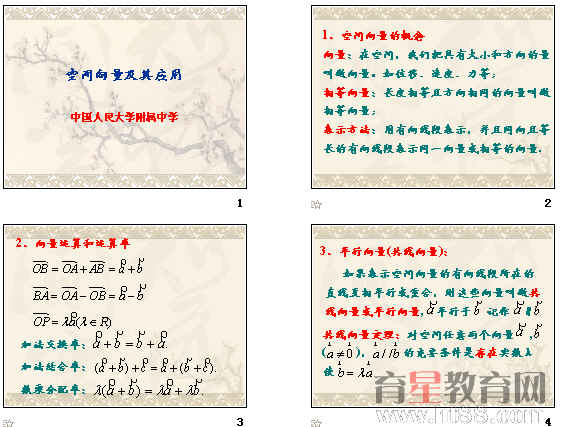 空间向量及其应用
中国人民大学附属中学
1
1、空间向量的概念
向量：在空间，我们把具有大小和方向的量
叫做向量。如位移、速度、力等；
相等向量：长度相等且方向相同的向量叫做
相等向量；
表示方法：用有向线段表示，并且同向且等
长的有向线段表示同一向量或相等的向量.
2
2、向量运算和运算率
OB = OA + AB = a + b
BA = OA − OB = a − b
OP = λa(λ ∈ R)
加法交换率：a + b = b + a.
加法结合率：(a + b) + c = a + (b + c).
数乘分配率：λ(a + b) = λa + λb.
3
3、平行向量(共线向量)：
如果表示空间向量的有向线段所在的
直线互相平行或重合，则这些向量叫做共
线向量或平行向量, a 平行于 b 记作 a // b
共线向量定理：对空间任意两个向量 a , b
( a ≠ 0 ), a // b 的充要条件是存在实数λ
使 b = λa
4
育星教育网
www.ht88.com